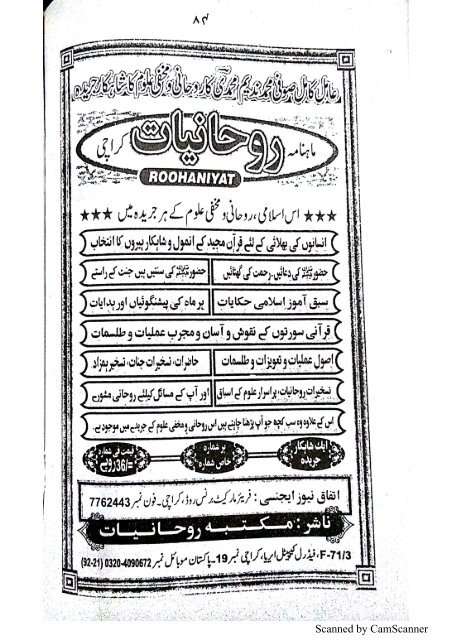 ۸۴
عامل کامل صوفی محمد ندیم محمدی کا روحانی و مخفی علوم کا شاہکار جریدہ
ماہنامہ روحانیات کراچی
ROOHANIYAT
★★★ اس اسلامی، روحانی و مخفی علوم کے ہر جریدہ میں ★★★
انسانوں کی بھلائی کے لئے قرآن مجید کے انمول و شاہکار ہیروں کا انتخاب
حضور ﷺ کی دعائیں، رحمت کی گھٹائیں
حضور ﷺ کی سنتیں ہیں جنت کے راستے
سبق آموز اسلامی حکایات
ہر ماہ کی پیشنگوئیاں اور ہدایات
قرآنی سورتوں کے نقوش و آسان و مجرب عملیات و طلسمات
اصول عملیات و تعویزات و طلسمات
حاضرات، تسخیرات جنات، تسخیر ہمزاد
تسخیرات روحانیات، پراسرار علوم کے اسباق
اور آپ کے مسائل کیلئے روحانی مشورے
اس کے علاوہ وہ سب کچھ جو آپ پڑھنا چاہتے ہیں اس روحانی و مخفی علوم کے جریدے میں موجود ہے۔
ایک شاہکار جریدہ
ہر شمارہ خاص شمارہ
قیمت فی شمارہ =/36 روپے
اتفاق نیوز ایجنسی : فریئر مارکیٹ برنس روڈ، کراچی۔ فون نمبر 7762443
ناشر: مکتبہ روحانیات
F-71/3، فیڈرل کیپیٹل ایریا، کراچی نمبر 19۔ پاکستان موبائل نمبر 0320-4090672 (92-21)
Scanned by CamScanner